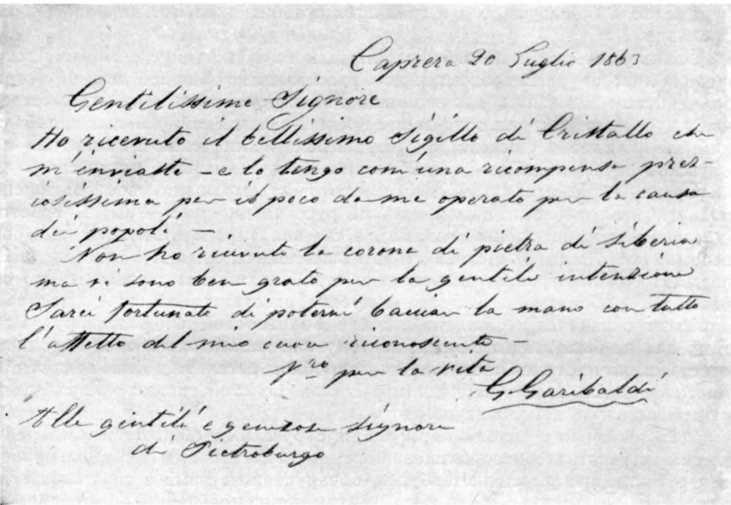 Caprera 20 Luglio 1863
Gentilissime Signore
Ho ricevuto il bellissimo Sigillo di Cristallo che
m'inviaste – e lo tengo com'una ricompensa prez-
iosissima per il poco da me operato per la causa
dei popoli –
Non ho ricevuto la corona di pietra di Siberia
ma vi sono ben grato per la gentile intenzione
Sarei fortunato di potervi bacciar la mano con tutto
l'affetto del mio cuore riconoscente –
Vro per la vita
G Garibaldi
Alle gentili e generose Signore
di Pietroburgo